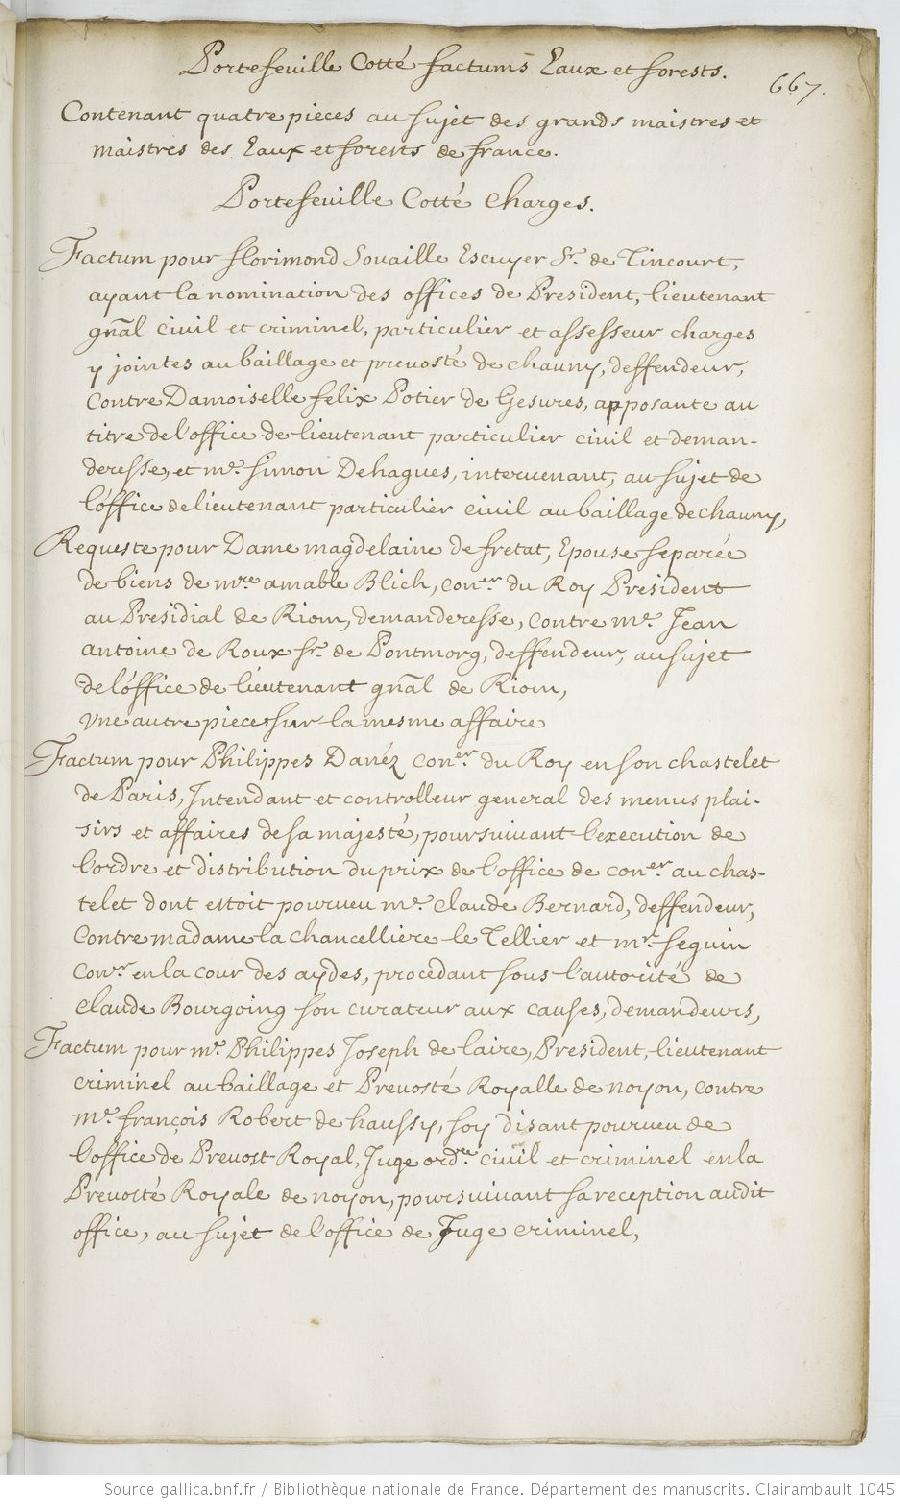 Portefeuille Cotté factums Eaux et forests.
667.
Contenant quatre pieces au sujet des grands maistres et
maistres des Eaux et forests de france.
Portefeuille Cotté Charges.
Factum pour florimond Souaille Escuyer Sr. de Tincourt,
ayant la nomination des offices de President, lieutenant
gnãl civil et criminel, particulier et assesseur charges
y jointes au baillage et prevosté de chauny, deffendeur,
contre Damoiselle felix Potier de Gesures, apposante au
titre de l'office de lieutenant particulier civil et deman-
deresse, et me. simon Dehagues, intervenant, au sujet de
l'office de lieutenant particulier civil au baillage de chauny,
Requeste pour Dame magdelaine de fretat, Epouse separée
de biens de mre. amable Blich, coner. du Roy President
au Presidial de Riom, demanderesse, contre me. Jean
antoine de Roux sr. de Pontmorg, deffendeur, au sujet
de l'office de lieutenant gnãl de Riom,
une autre piece sur la mesme affaire
Factum pour Philippes Danéz coner. du Roy en son chastelet
de Paris, Intendant et controlleur general des menus plai-
sirs et affaires de sa majesté, poursuivant l'execution de
l'ordre et distribution du prix de l'office de coner. au chas-
telet dont estoit pourveu me. Claude Bernard, deffendeur,
Contre madame la chancelliere le Tellier et mr. seguin
Coner. en la cour des aydes, procedant sous l'autorité de
Claude Bourgoing son curateur aux causes, demandeurs,
Factum pour me. Philippes Joseph de laire, President, lieutenant
criminel au baillage et Prevosté Royalle de noyon, contre
me. françois Robert de haussy, soy disant pourveu de
l'office de Prevost Royal, Juge ordre. civil et criminel en la
Prevosté Royale de noyon, poursuivant sa reception audit
office, au sujet de l'office de Juge criminel,
Source gallica.bnf.fr / Bibliothèque nationale de France. Département des manuscrits. Clairambault 1045